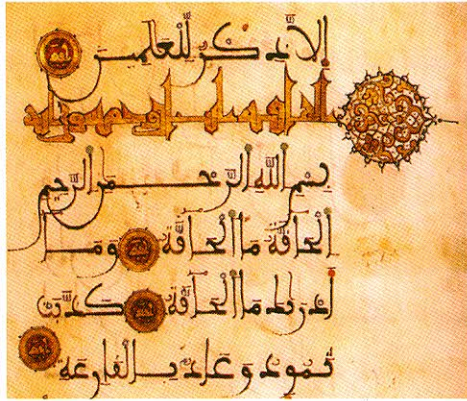 إلا ذكر للعلمين
بسم الله الرحمن الرحيم
الحاقة ما الحاقة وما
أدريك ما الحاقة كذبت
ثمود وعاد بالقارعة